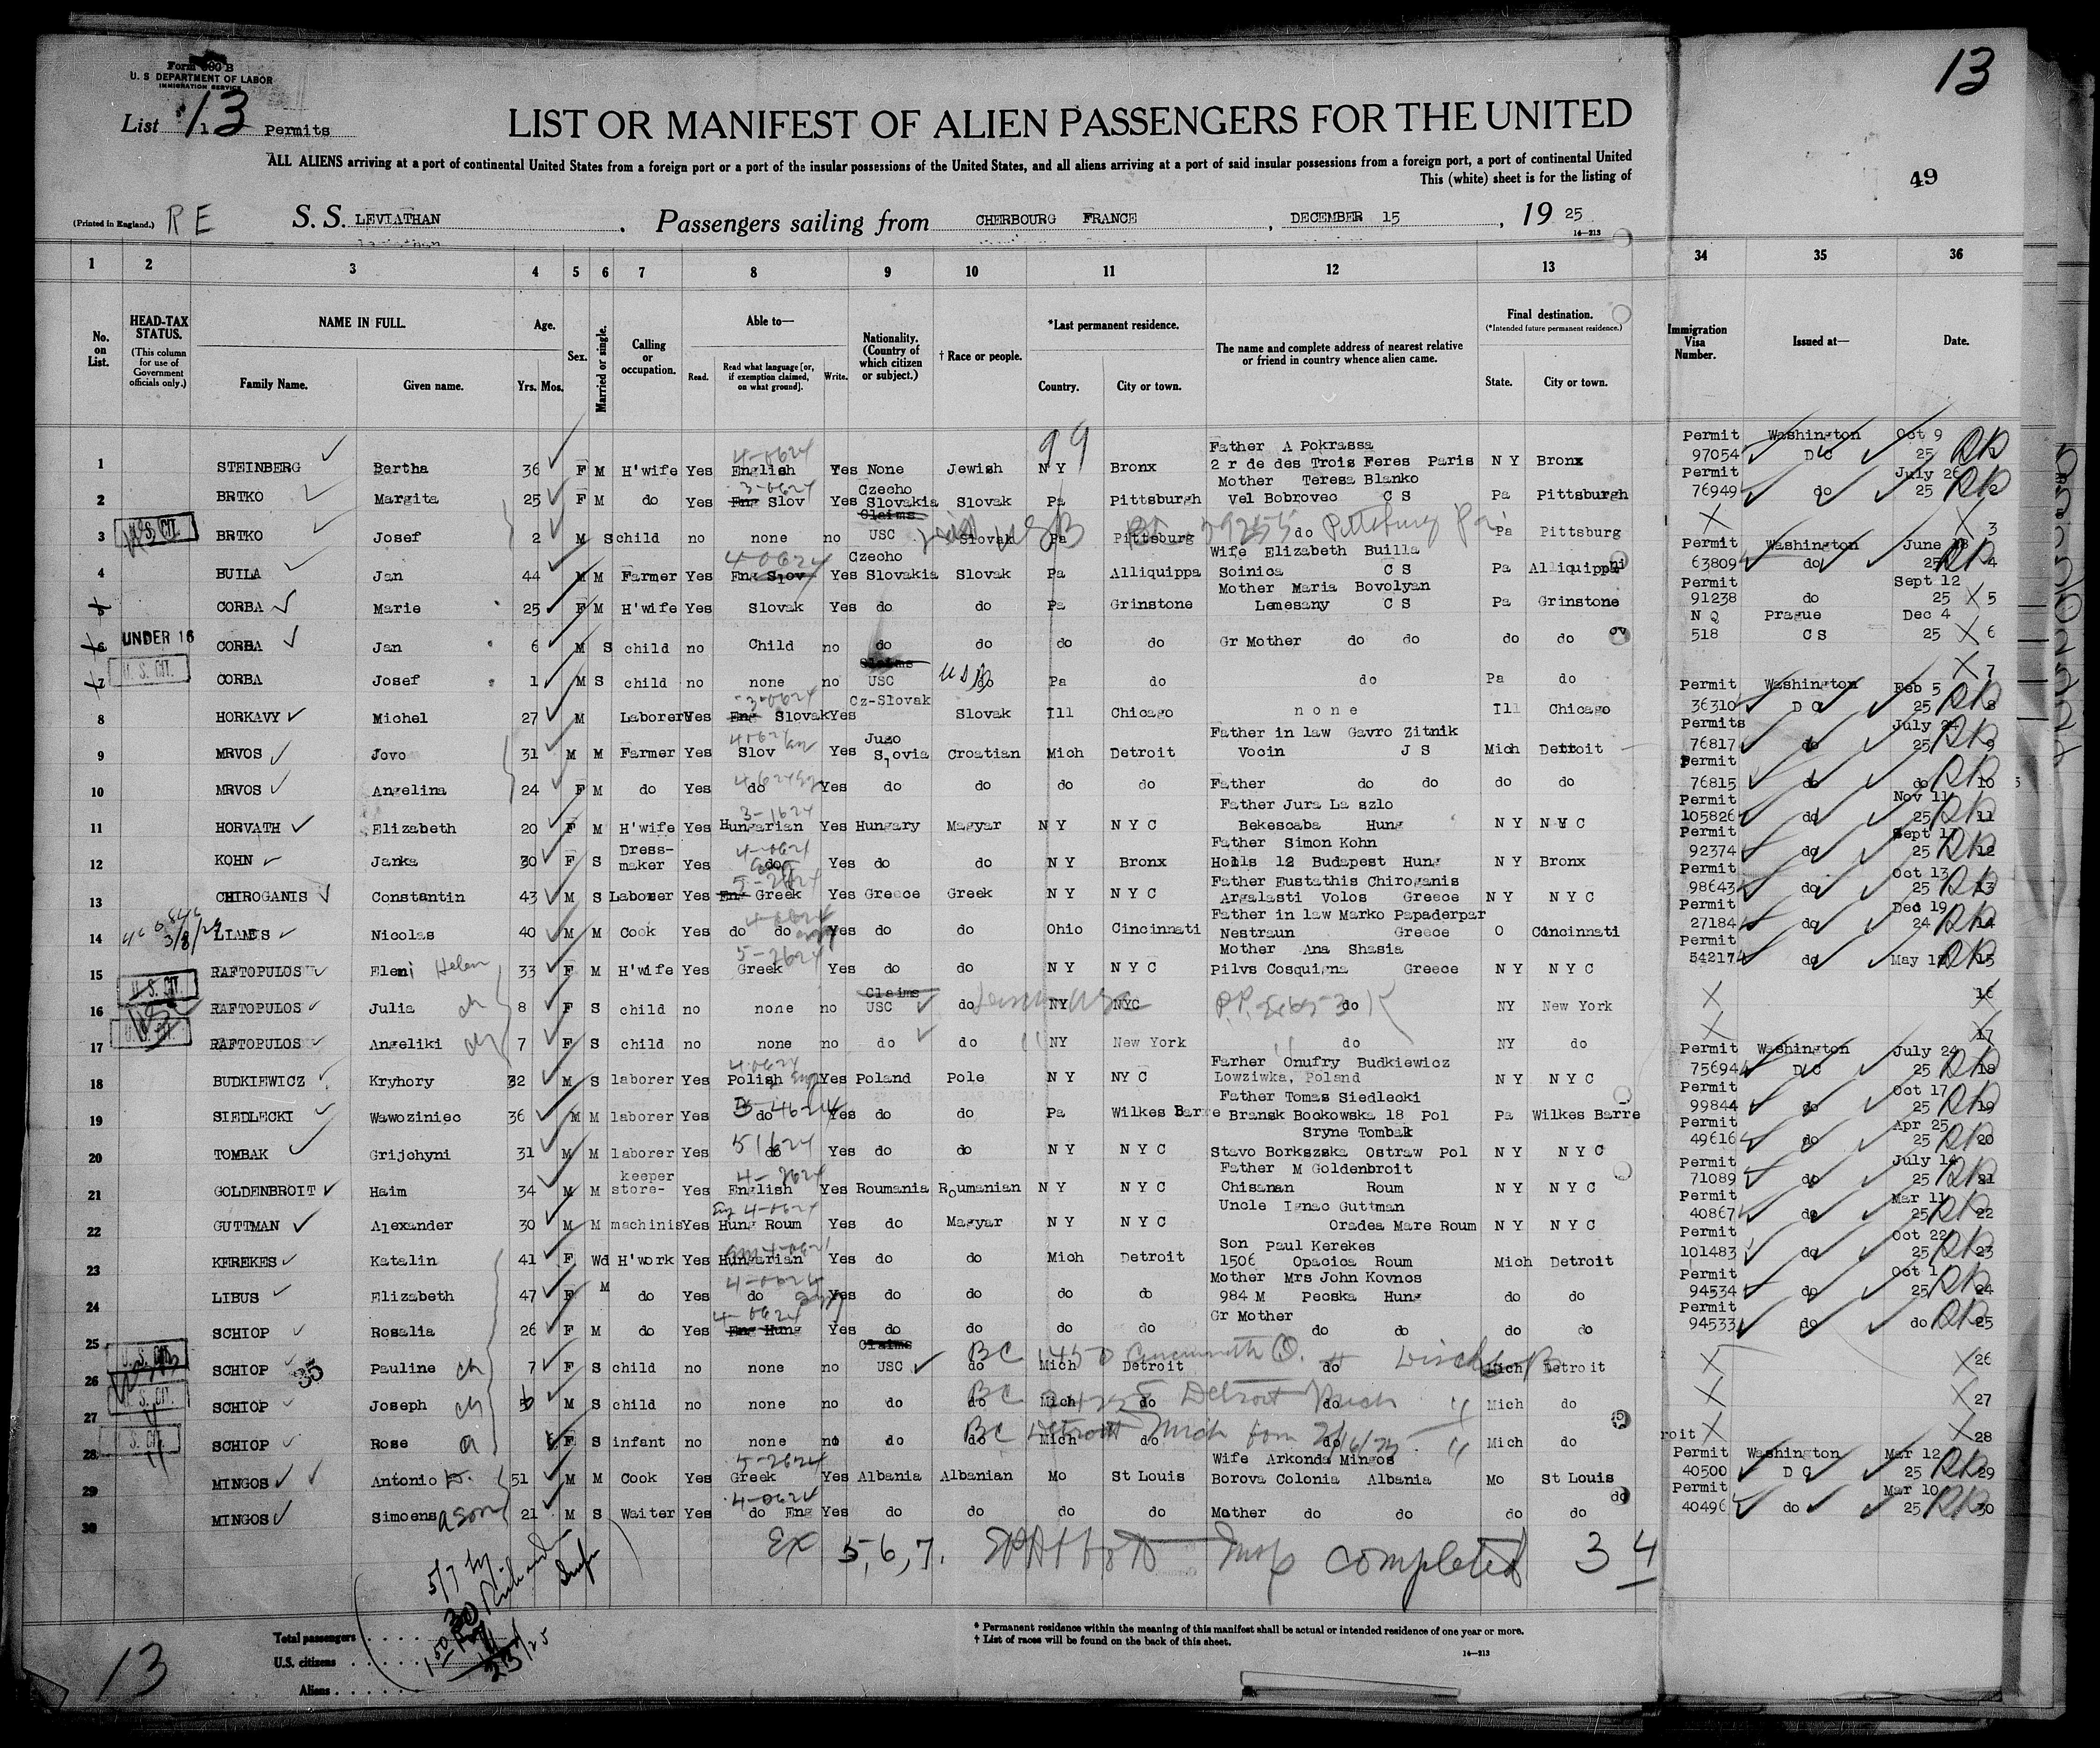 Form 500 B
U. S DEPARTMENT OF LABOR
IMMIGRATION SERVICE
13
List 13 Permits
LIST OR MANIFEST OF ALIEN PASSENGERS FOR THE UNITED
ALL ALIENS arriving at a port of continental United States from a foreign port or a port of the insular possessions of the United States, and all aliens arriving at a port of said insular possessions from a foreign port, a port of continental United
This (white) sheet is for the listing of
49
(Printed in England.) R E S. S. LEVIATHAN. Passengers sailing from CHERBOURG FRANCE, DECEMBER 15, 19 25
14—213
1 2 3 4 5 6 7 8 9 10 11 12 13 34 35 36
No. on List. HEAD-TAX STATUS. (This column for use of Government officials only.) NAME IN FULL. Family Name. Given name. Age. Yrs. Mos. Sex. Married or single. Calling or occupation. Able to— Read. Read what language [or, if exemption claimed, on what ground]. Write. Nationality. (Country of which citizen or subject.) † Race or people. *Last permanent residence. Country. City or town. The name and complete address of nearest relative or friend in country whence alien came. Final destination. (*Intended future permanent residence.) State. City or town. Immigration Visa Number. Issued at— Date.
99
1 STEINBERG Bertha 36 F M H'wife Yes English Yes None Jewish N Y Bronx Father A Pokrassa 2 r de des Trois Feres Paris N Y Bronx Permit 97054 Washington D C Oct 9 25
2 BRTKO Margita 25 F M do Yes Eng Slov Yes Czecho Slovakia Slovak Pa Pittsburgh Mother Teresa Blanko Vel Bobrovec C S Pa Pittsburgh Permit 76949 do July 26 25 2
3 U. S. CIT. BRTKO Josef 2 M S child no none no Claims USC Slovak Pa Pittsburg do Pa Pittsburg 3
4 BUILA Jan 44 M M Farmer Yes Eng Slov Yes Czecho Slovakia Slovak Pa Alliquippa Wife Elizabeth Builla Soinica C S Pa Alliquippa Permit 63809 Washington do June 18 25 4
5 CORBA Marie 25 F M H'wife Yes Slovak Yes do do Pa Grinstone Mother Maria Bovolyan Lemesany C S Pa Grinstone Permit 91238 do Sept 12 25 5
6 UNDER 16 CORBA Jan 6 M S child no Child no do do do do Gr Mother do do do do N Q 518 Prague C S Dec 4 25 6
7 U. S. CIT. CORBA Josef 1 M S child no none no Claims USC do Pa do do Pa do 7
8 HORKAVY Michel 27 M Laborer Yes Eng Slovak Yes Cz-Slovak Slovak Ill Chicago none Ill Chicago Permit 36310 Washington D C Feb 5 25 8
9 MRVOS Jovo 31 M M Farmer Yes Slov Yes Jugo Slovia Croatian Mich Detroit Father in law Gavro Zitnik Vocin J S Mich Detroit Permits 76817 do July 24 25 9
10 MRVOS Angelina 24 F M do Yes do Yes do do do do Father do do do do Permit 76815 do do 10
11 HORVATH Elizabeth 20 F M H'wife Yes Hungarian Yes Hungary Magyar N Y N Y C Father Jura La szlo Bekescaba Hung N Y N Y C Permit 105826 do Nov 11 25 11
12 KOHN Janka 30 F S Dress-maker Yes do Yes do do N Y Bronx Father Simon Kohn Holls 12 Budapest Hung N Y Bronx Permit 92374 do Sept 17 25 12
13 CHIROGANIS Constantin 43 M S Laborer Yes Eng Greek Yes Greece Greek N Y N Y C Father Eustathis Chiroganis Argalasti Volos Greece N Y N Y C Permit 98643 do Oct 13 25 13
14 LIAMES Nicolas 40 M M Cook Yes do do Yes do do Ohio Cincinnati Father in law Marko Papaderpar Nestraun Greece O Cincinnati Permit 27184 do Dec 19 24 14
15 RAFTOPULOS Eleni Helen 33 F M H'wife Yes Greek Yes do do N Y N Y C Mother Ana Shasia Pilvs Cosquigna Greece N Y N Y C Permit 54217 do May 12 15
16 U. S. CIT. RAFTOPULOS Julia ch 8 F S child no none no Claims USC do NY NYC do NY New York 16
17 RAFTOPULOS Angeliki ch 7 F S child no none no do do NY New York do NY do 17
18 BUDKIEWICZ Kryhory 32 M S laborer Yes Polish Yes Poland Pole N Y NY C Farher Onufry Budkiewicz Lowziwka, Poland N Y N Y C Permit 75694 Washington D C July 24 25 18
19 SIEDLECKI Wawoziniec 36 M M laborer Yes do Yes do do Pa Wilkes Barre Father Tomas Siedlecki Bransk Bockowska 18 Pol Pa Wilkes Barre Permit 99844 do Oct 17 25 19
20 TOMBAK Grijchyni 31 M M laborer Yes do Yes do do N Y N Y C Sryne Tombak Stavo Borkszska Ostraw Pol N Y N Y C Permit 49616 do Apr 25 25 20
21 GOLDENBROIT Haim 34 M M keeper store- Yes English Yes Roumania Roumanian N Y N Y C Father M Goldenbroit Chisanan Roum N Y N Y C Permit 71089 do July 14 25 21
22 GUTTMAN Alexander 30 M M machinis Yes Hung Roum Yes do Magyar N Y N Y C Uncle Ignac Guttman Oradea Mare Roum N Y N Y C Permit 40867 do Mar 11 25 22
23 KEREKES Katalin 41 F Wd H'work Yes Hungarian Yes do do Mich Detroit Son Paul Kerekes 1506 Opacica Roum Mich Detroit Permit 101483 do Oct 22 25 23
24 LIBUS Elizabeth 47 F M do Yes do Yes do do do do Mother Mrs John Kovnos 984 M Pecska Hung do do Permit 94534 do Oct 1 25 24
25 SCHIOP Rosalia 26 F M do Yes Eng Hung Yes do do do do Gr Mother do do do do Permit 94533 do do 25
26 U. S. CIT. SCHIOP 35 Pauline ch 7 F S child no none no Claims USC do Mich Detroit do Mich Detroit 26
27 U. S. CIT. SCHIOP Joseph ch 5 M S child no none no do do Mich do do Mich do 27
28 S. CIT. SCHIOP Rose F S infant no none no do do Mich do do Mich do 28
29 MINGOS Antonio 51 M M Cook Yes Greek Yes Albania Albanian Mo St Louis Wife Arkonda Mingos Borova Colonia Albania Mo St Louis Permit 40500 Washington D C Mar 12 25 29
30 MINGOS Simoens a son 21 M S Waiter Yes do Eng Yes do do do do Mother do do do do Permit 40496 do Mar 10 25 30
Ex 5, 6, 7. Insp completed 34
Total passengers
U.S. citizens
Aliens
* Permanent residence within the meaning of this manifest shall be actual or intended residence of one year or more.
† List of races will be found on the back of this sheet.
14—213
13